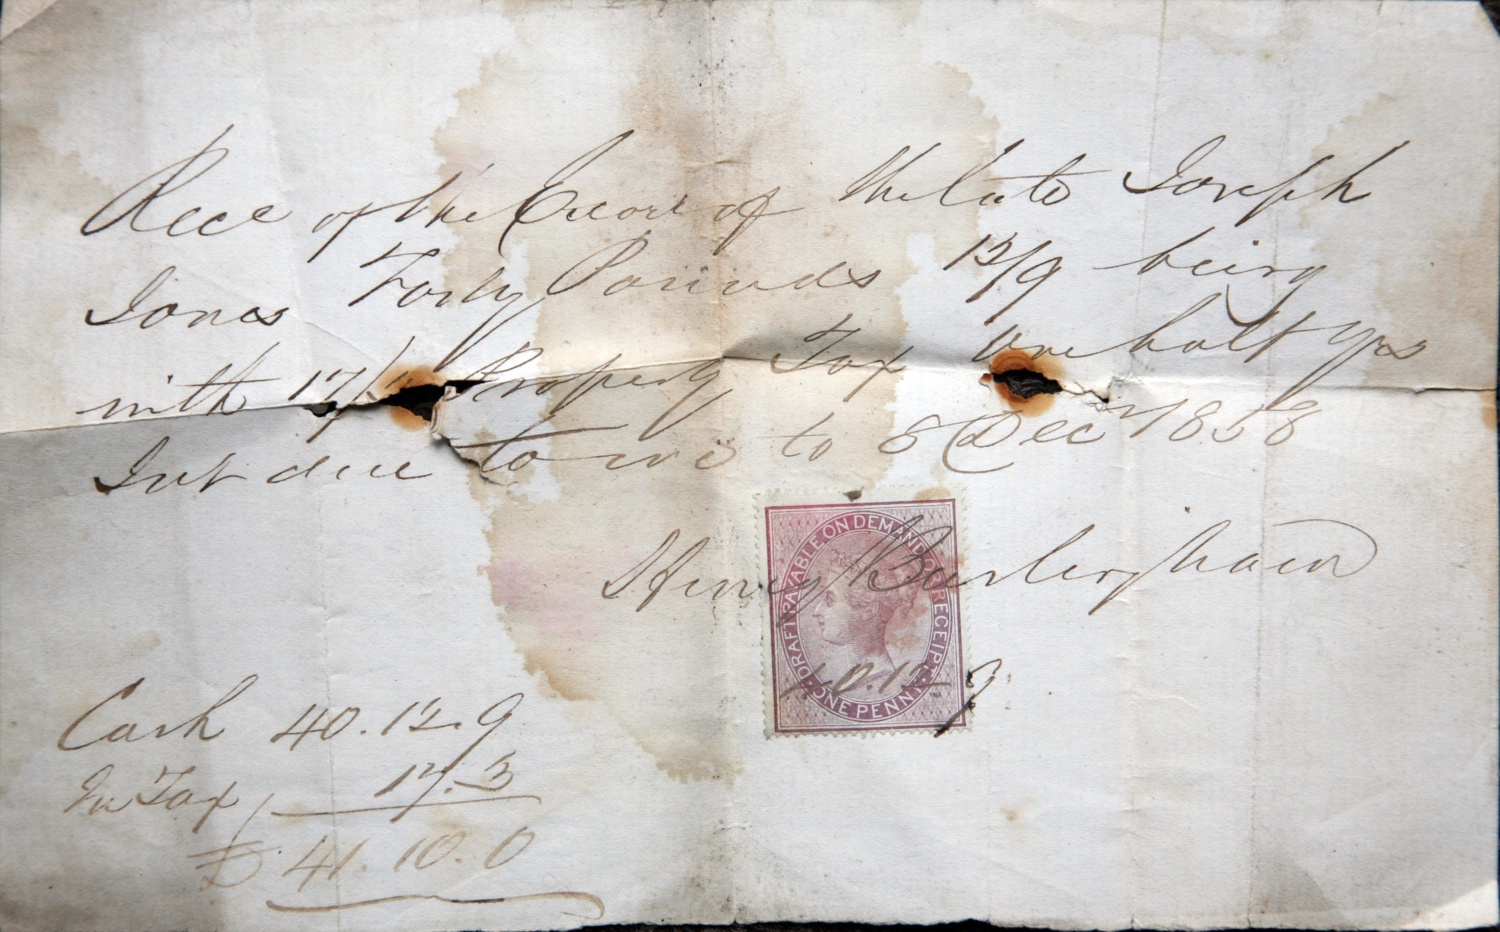 Rece of the Execors of the late Joseph
Jones Forty Pounds 12/9 being
with 17/3 Property Tax one half yrs
Int due to me to 8 Dec 1858
Henry Burlingham
DRAFT PAYABLE ON DEMAND OR RECEIPT. INC. ONE PENNY.
40.12.9
Cash 40.12.9
In Tax 17.3
£ 41.10.0